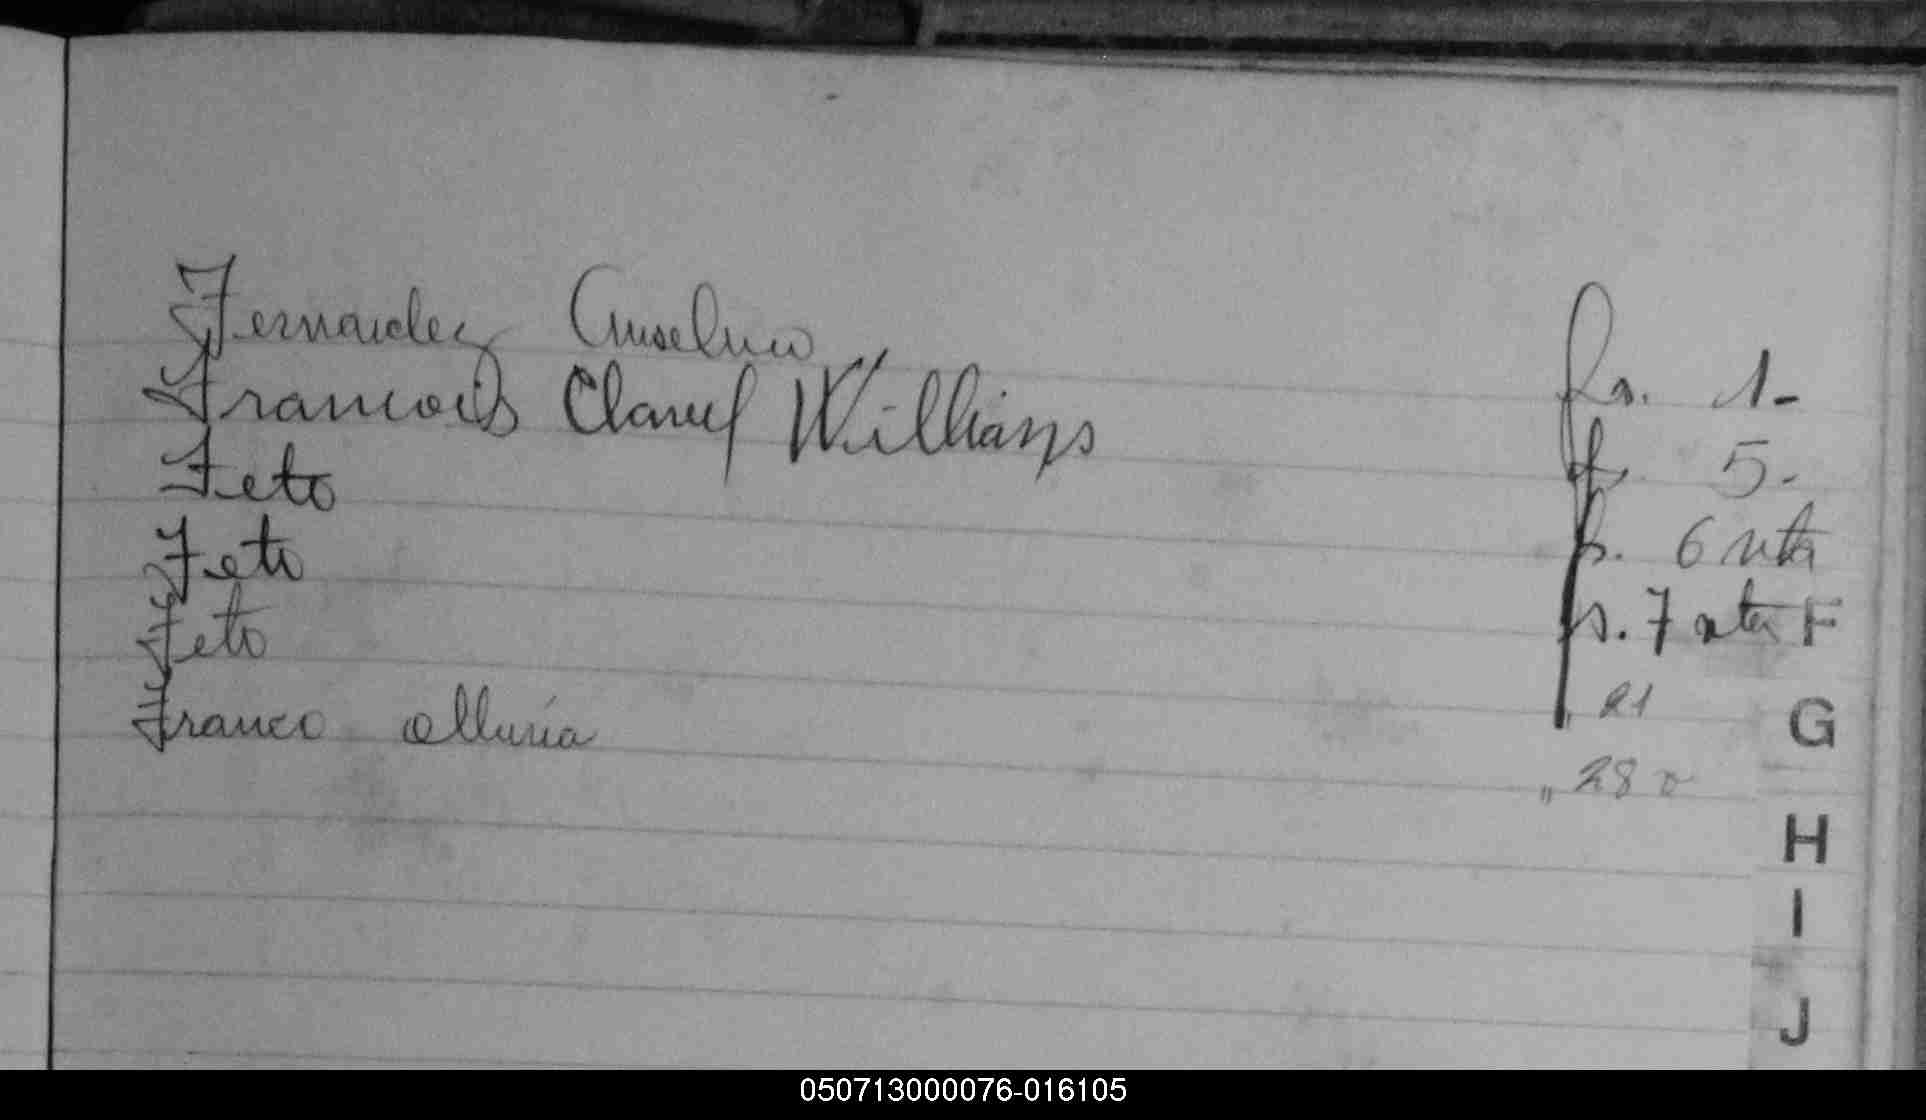 Fernandez Anselmo fs. 1-
Francois Claruf Willians fs. 5-
Feto fs. 6 vta
Feto fs. 7 vta
Feto " 21
Franco Maria " 28 v
F
G
H
I
J
050713000076-016105